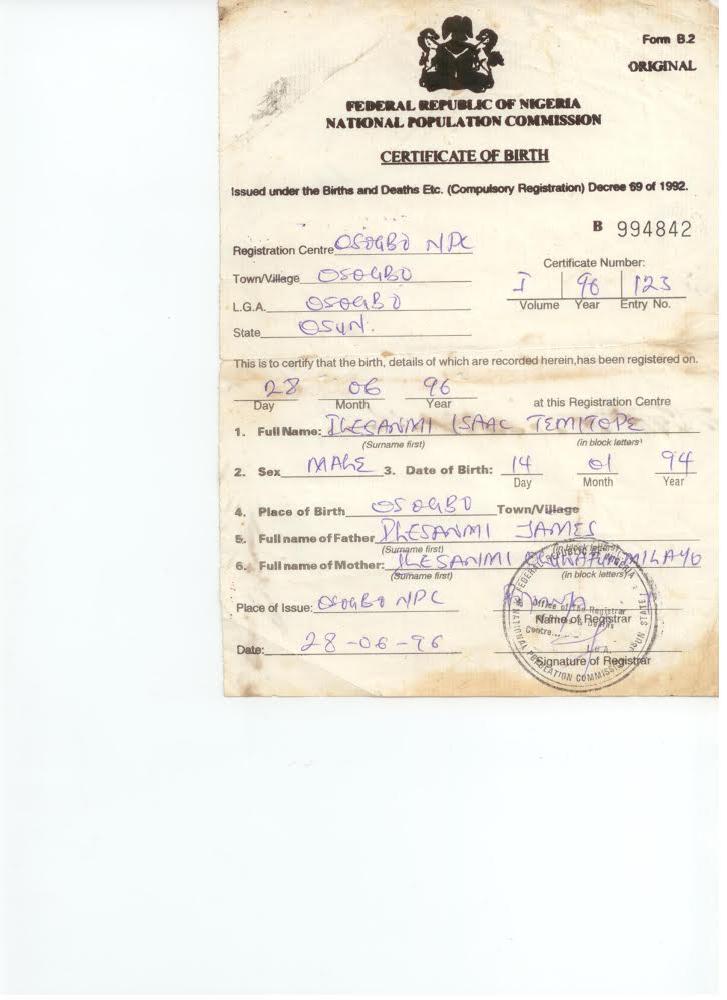 Form B.2
ORIGINAL
FEDERAL REPUBLIC OF NIGERIA
NATIONAL POPULATION COMMISSION
CERTIFICATE OF BIRTH
Issued under the Births and Deaths Etc. (Compulsory Registration) Decree 69 of 1992.
B 994842
Registration Centre OSOGBO NPC
Certificate Number:
Town/Village OSOGBO
I 96 123
Volume Year Entry No.
L.G.A. OSOGBO
State OSUN.
This is to certify that the birth, details of which are recorded herein, has been registered on.
28 06 96 at this Registration Centre
Day Month Year
1. Full Name: ILESANMI ISAAC TEMITOPE
(Surname first) (in block letters)
2. Sex MALE 3. Date of Birth: 14 01 94
Day Month Year
4. Place of Birth OSOGBO Town/Village
5. Full name of Father ILESANMI JAMES
(Surname first) (in block letters)
6. Full name of Mother: ILESANMI
(Surname first) (in block letters)
Place of Issue: OSOGBO NPC
Name of Registrar
Date: 28-06-96
Signature of Registrar
FEDERAL REPUBLIC OF NIGERIA
Office of the Registrar
Centre
NATIONAL POPULATION COMMISSION OSUN STATE